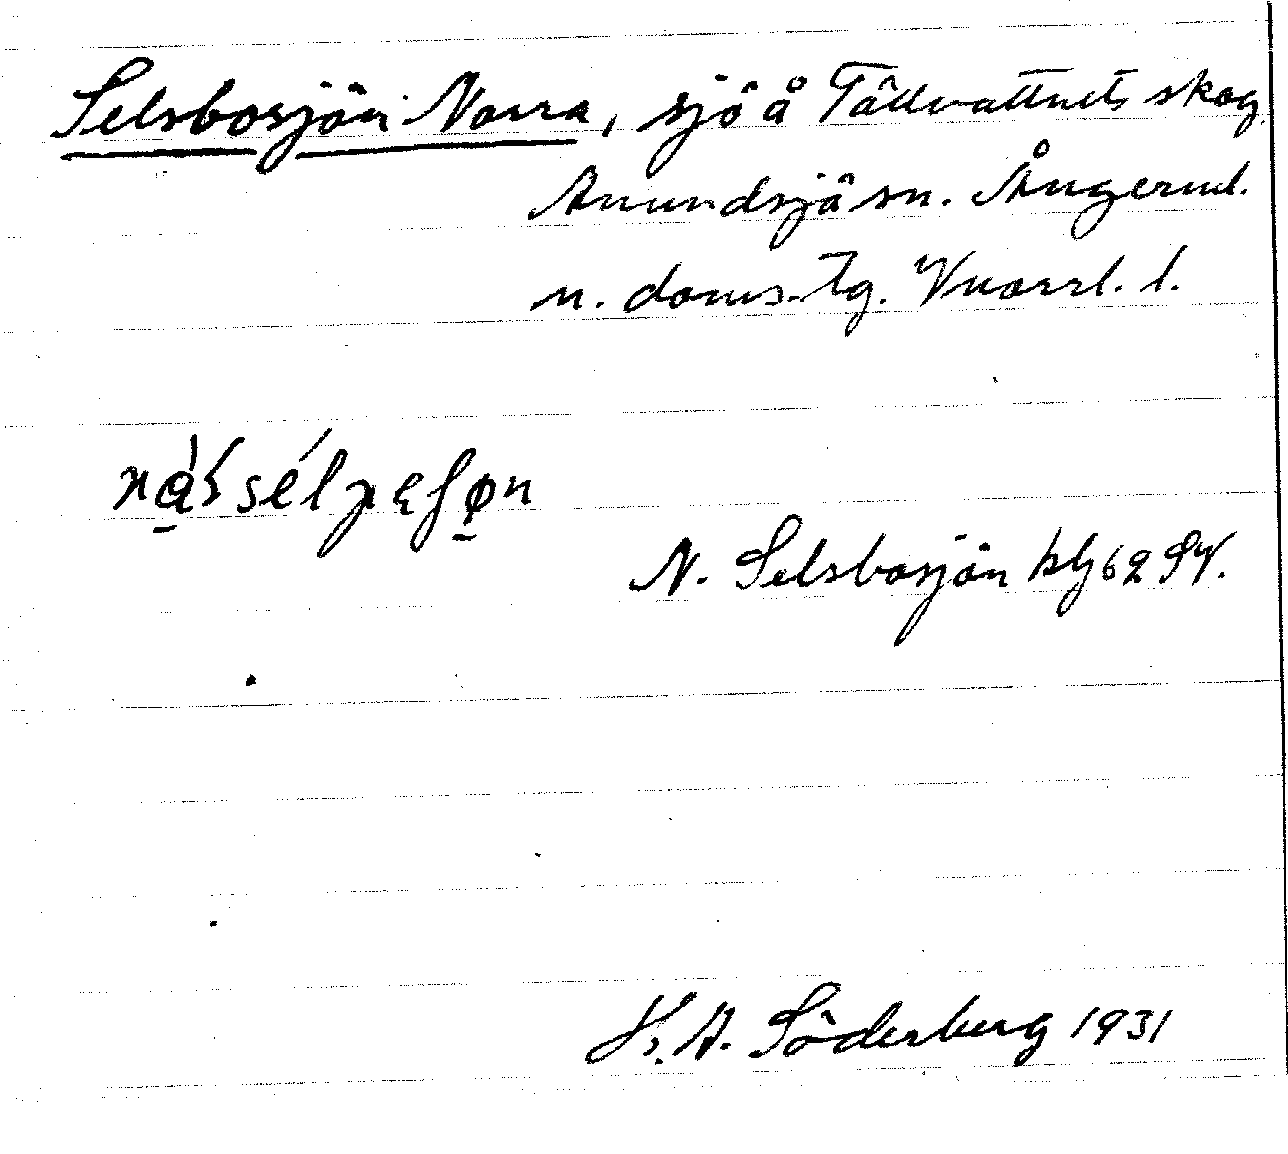 Selsbosjön Norra, sjö å Tällvattnets skog
Anundsjö sn. Ångerml.
n. doms. Tg. Vnorrl. l.
N. Selsbosjön kbl 62 SV.
K. A. Söderberg 1931